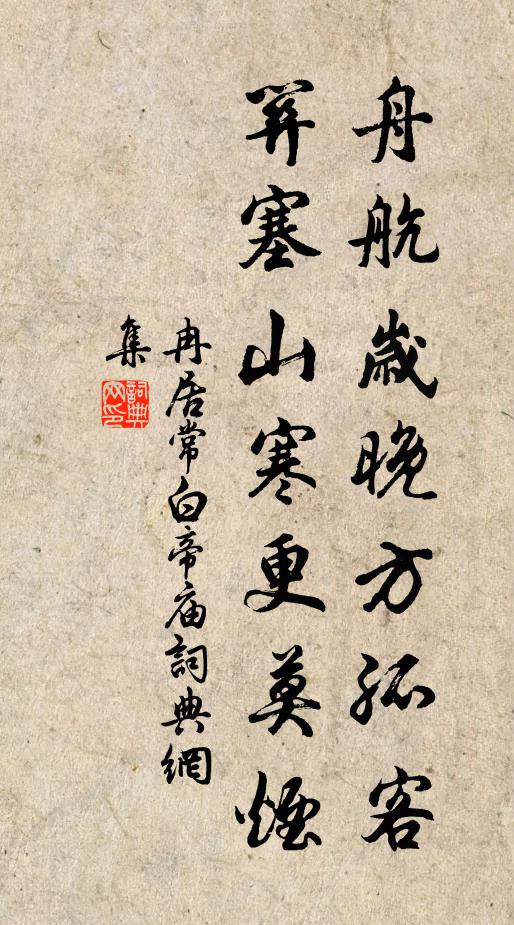 舟航歲晚方孤客
關塞山寒更莫煙
冉居常白帝庙詞典網
集
詞典網印